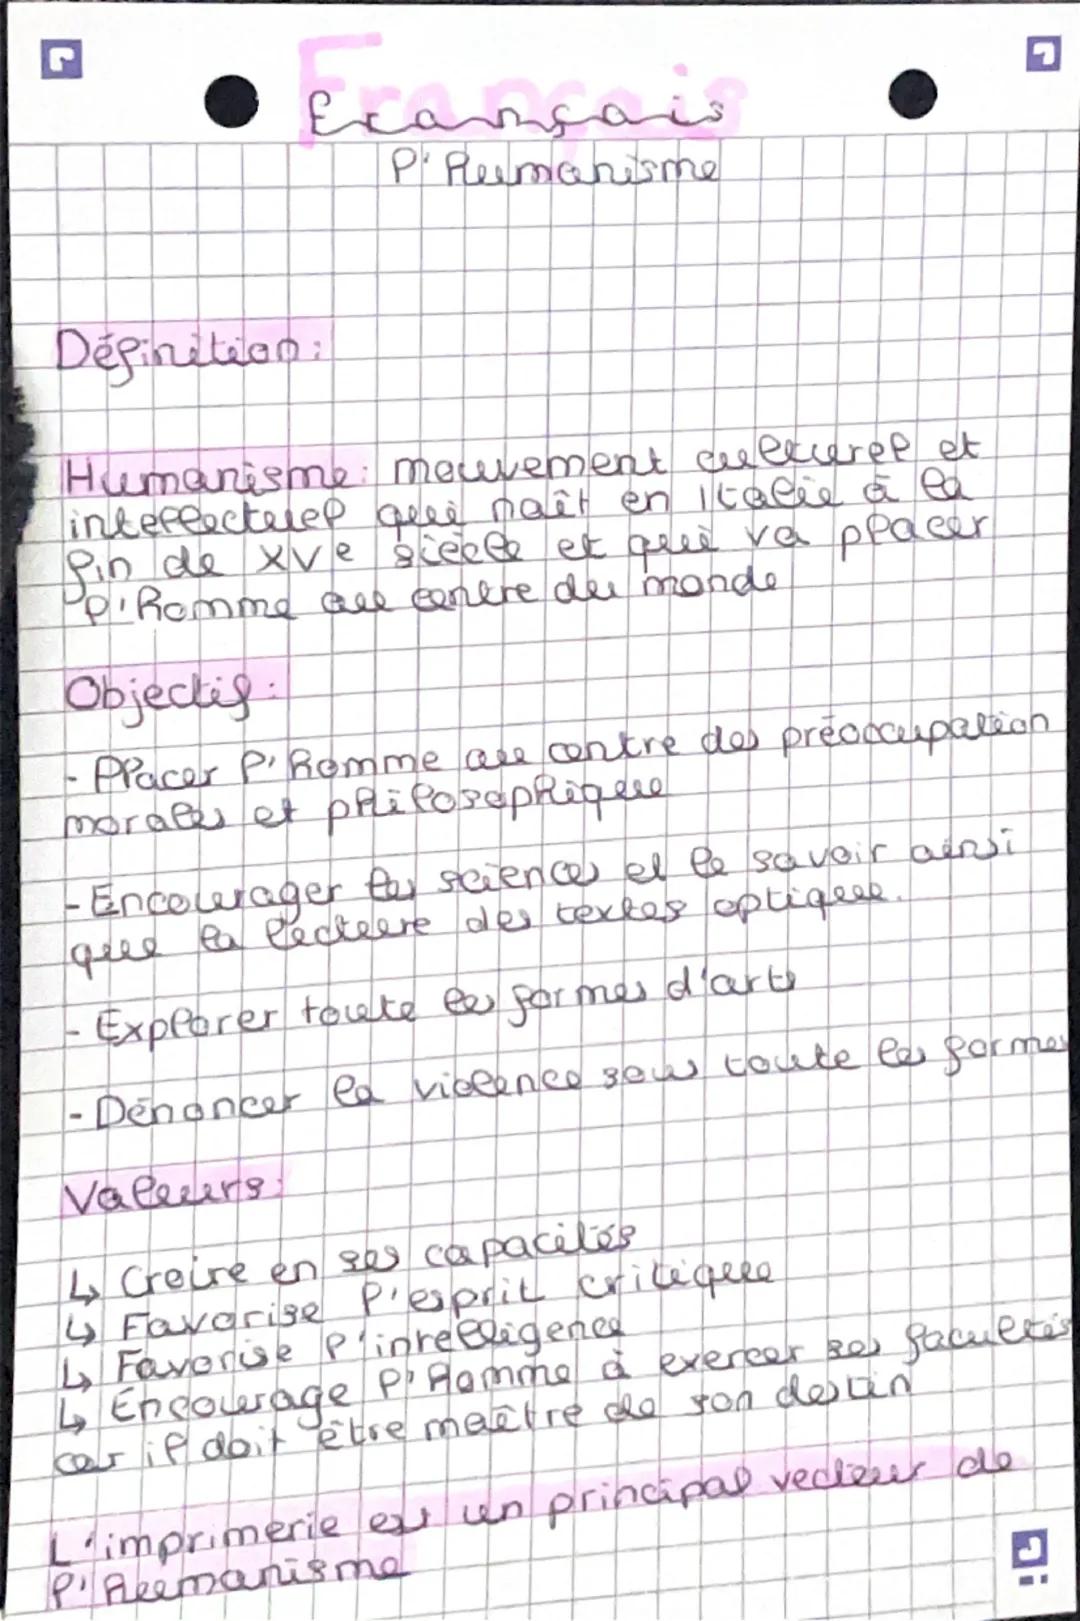 Français
l'Humanisme
Définition :
Humanisme : mouvement culturel et
intellectuel qui naît en Italie à la
fin de XVe siècle et qui va placer
l'Homme au centre du monde
Objectif :
- Placer l'Homme au centre des préoccupation
morales et philosophique
- Encourager les sciences et le savoir ainsi
que la lecture des textes optique.
- Explorer toute les formes d'arts
- Dénoncer la violence sous toute les formes
Valeurs :
↳ Croire en ses capacités
↳ Favorise l'esprit critique
↳ Favorise l'intelligence
↳ Encourage l'Homme à exercer ses facultés
car il doit être maître de son destin
L'imprimerie est un principal vecteur de
l'Humanisme